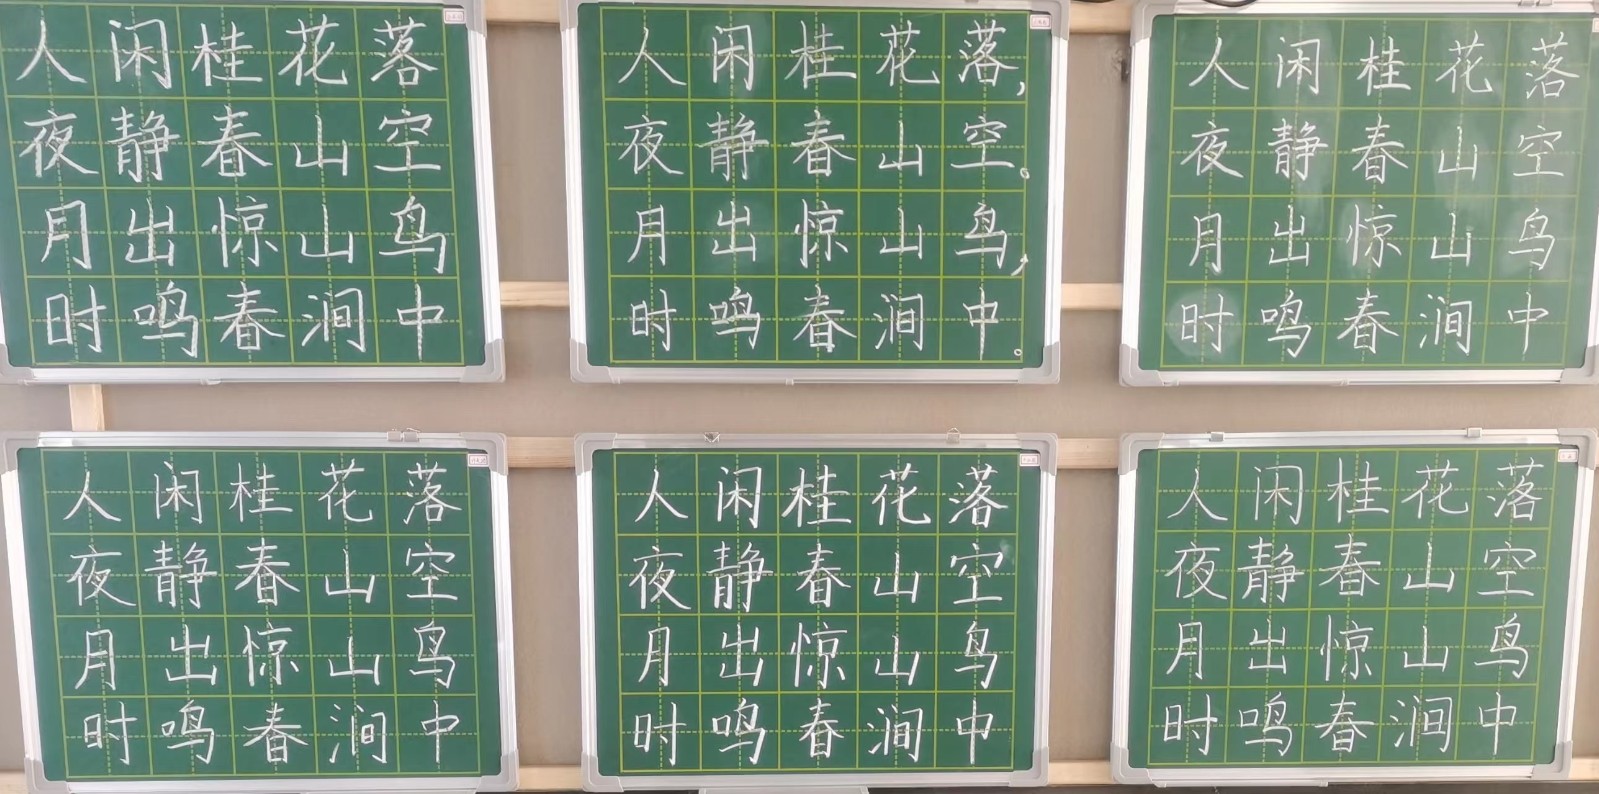 人闲桂花落
夜静春山空
月出惊山鸟
时鸣春涧中
人闲桂花落,
夜静春山空。
月出惊山鸟,
时鸣春涧中。
人闲桂花落
夜静春山空
月出惊山鸟
时鸣春涧中
人闲桂花落
夜静春山空
月出惊山鸟
时鸣春涧中
人闲桂花落
夜静春山空
月出惊山鸟
时鸣春涧中
人闲桂花落
夜静春山空
月出惊山鸟
时鸣春涧中